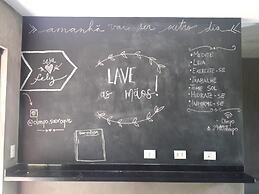 amanhã vai ser outro dia
seja
feliz
LAVE
as MÃOS!
• MEDITE
• LEIA
• EXERCITE-SE
• TRABALHE
• TOME SOL
• HIDRATE-SE
• INFORME-SE